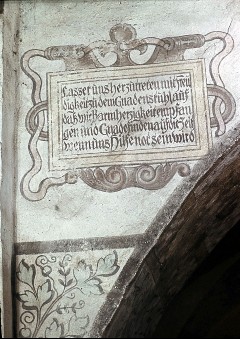 Lasset uns herzutreten mit freu
digkeit zu dem Gnadenstuhl auf
daß wir Barmherzigkeit empfan
gen und Gnade finden auf die Zeit
wenn uns Hilfe not sein wird